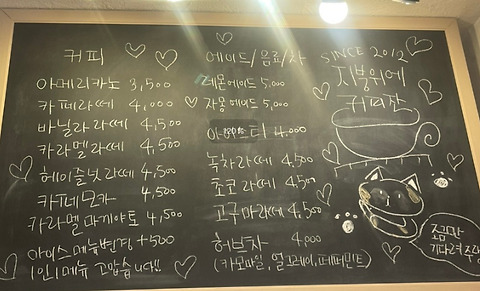 커피
아메리카노 3,500
카페라떼 4,000
바닐라라떼 4,500
카라멜라떼 4,500
헤이즐넛라떼 4,500
카페모카 4,500
카라멜마끼야또 4,500
아이스메뉴변경 +500
1인 1메뉴 고맙습니다!!
에이드/음료/차
레몬에이드 5,000
자몽에이드 5,000
4,000
녹차라떼 4,500
초코라떼 4,500
고구마라떼 4,500
허브차 4,000
(카모마일, 얼그레이, 페퍼민트)
SINCE 2012
지붕위에
커피잔
조금만
기다려주